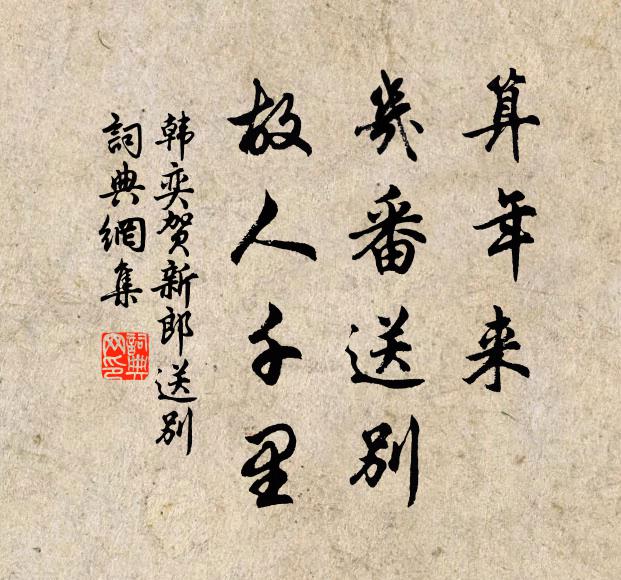 算年来
幾番送别
故人千里
韩奕贺新郎送别
詞典網集
詞典
网印